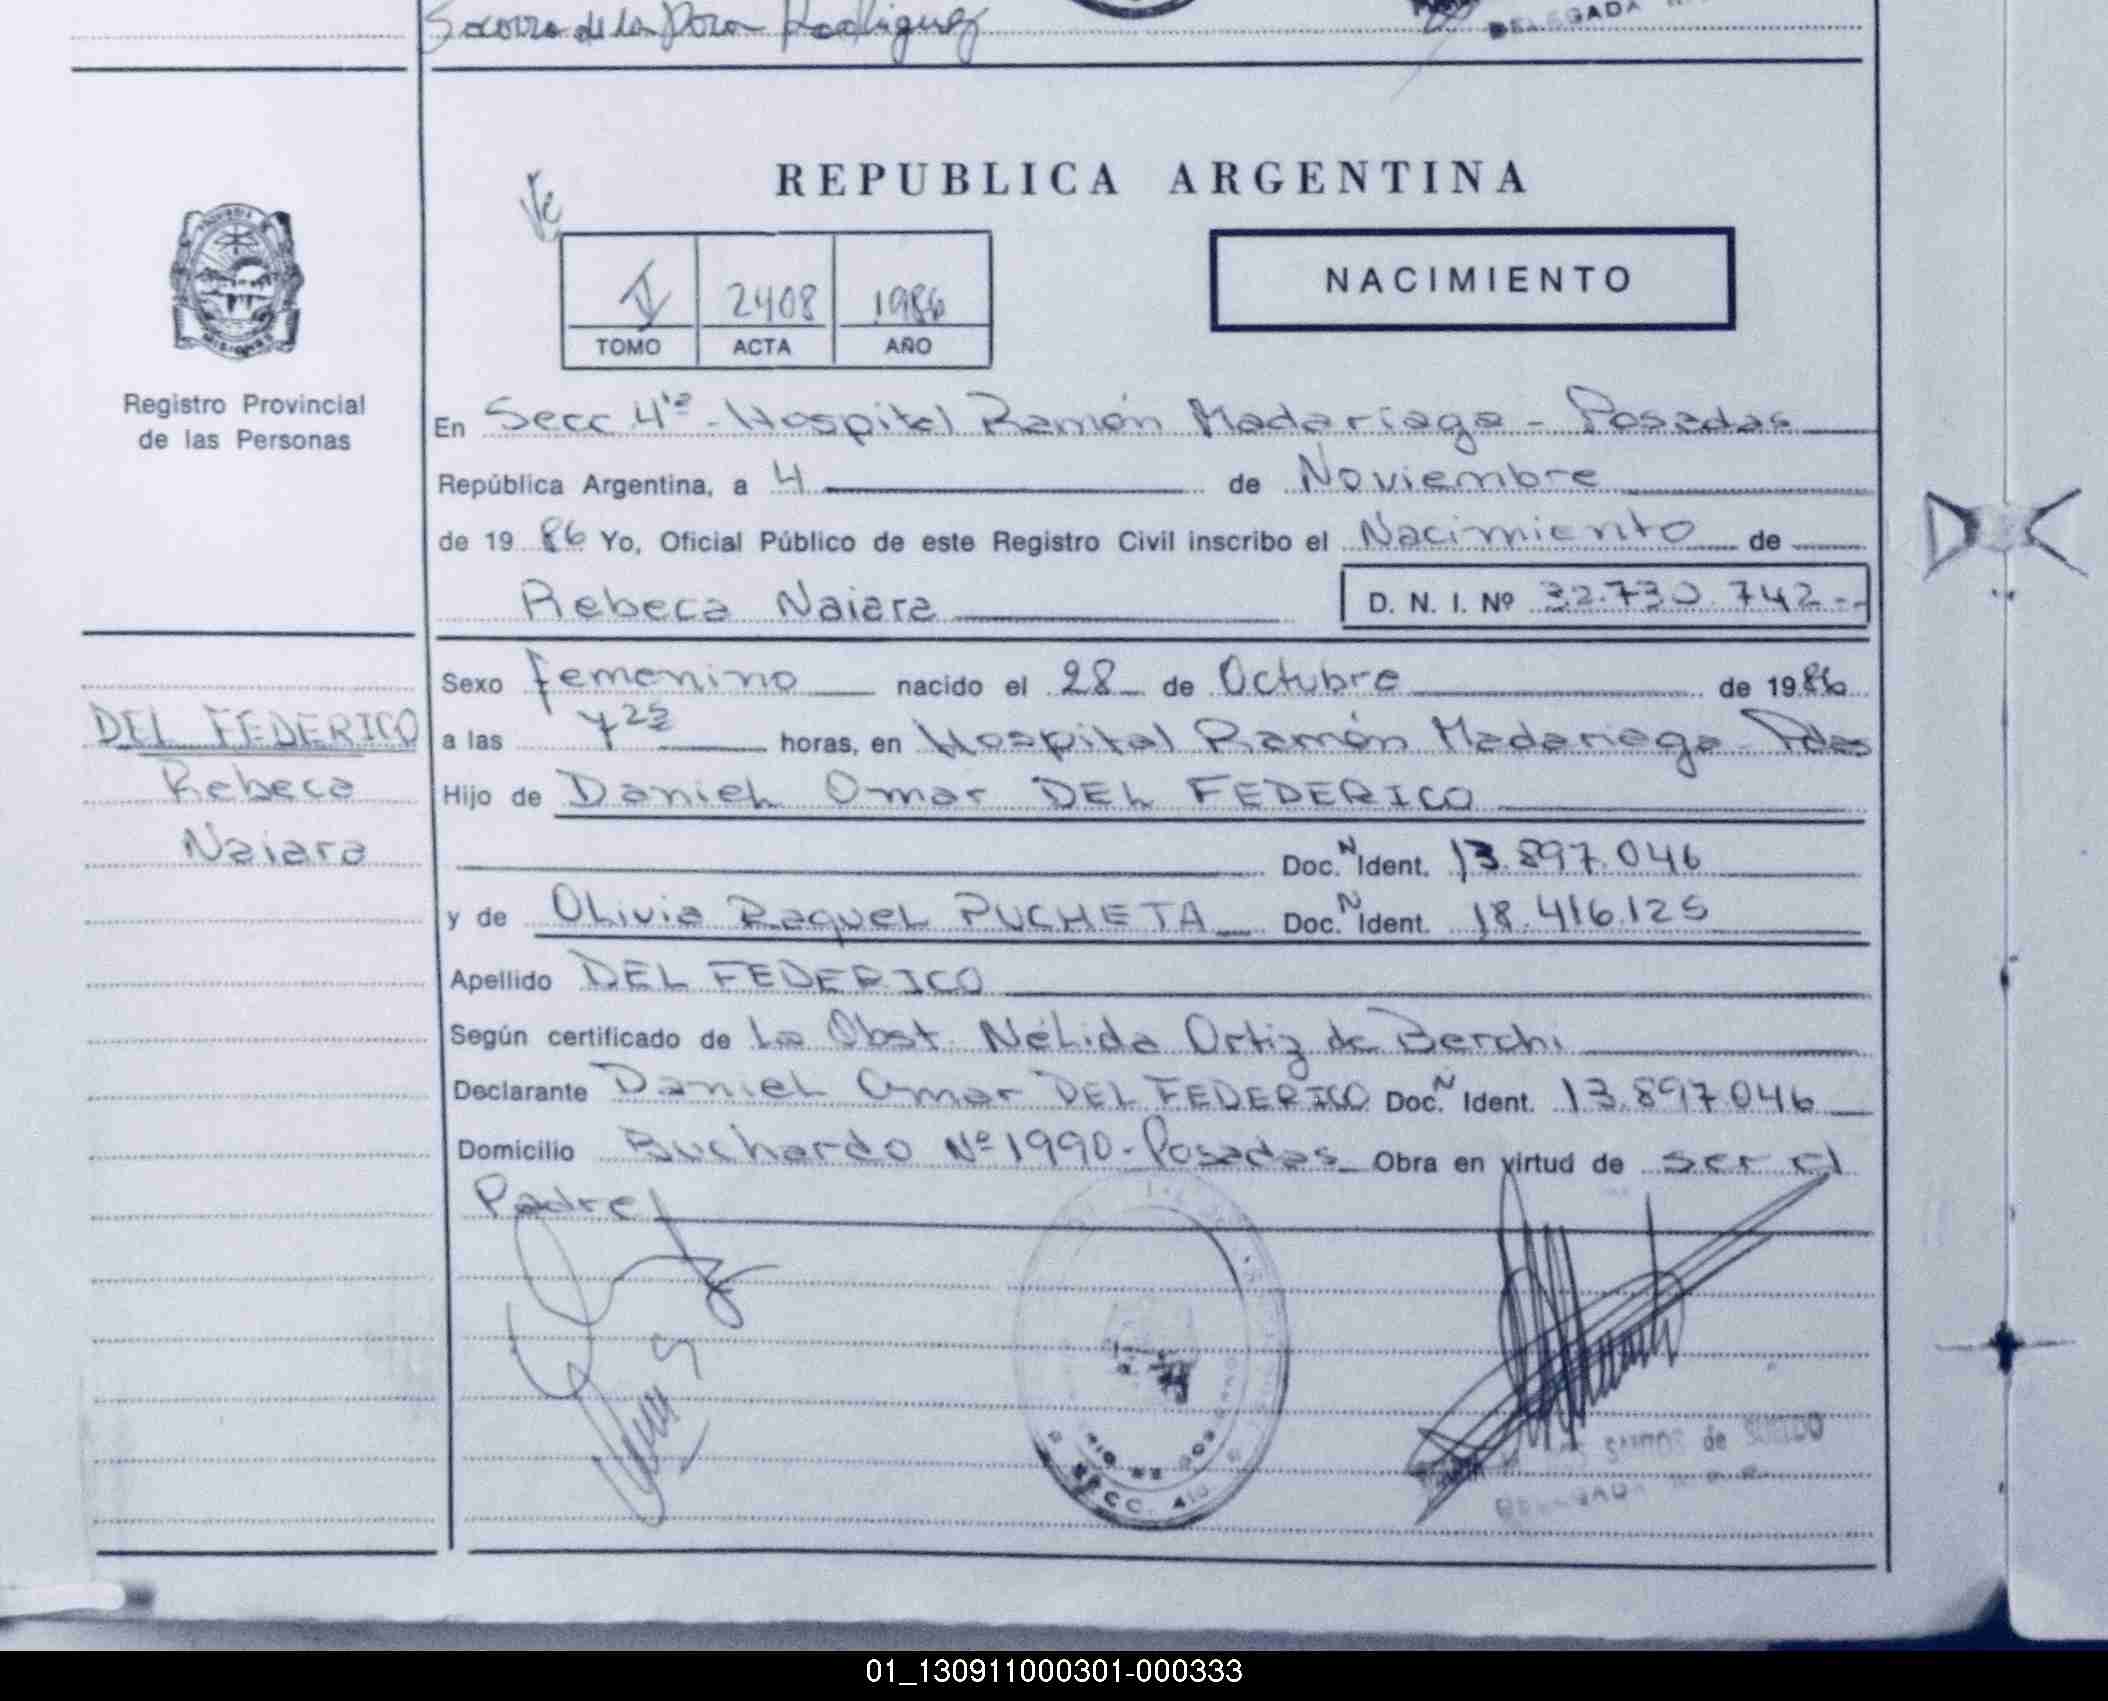 Socorro de la Rodriguez
DELEGADA
REPUBLICA ARGENTINA
2408 1986
TOMO ACTA AÑO
NACIMIENTO
MISIONES
Registro Provincial
de las Personas
En Secc 4ta - Hospital Ramón Madariaga - Posadas
República Argentina, a 4 de Noviembre
de 1986 Yo, Oficial Público de este Registro Civil inscribo el Nacimiento de
Rebeca Naiara D. N. I. Nº 32.730.742--
DEL FEDERICO
Rebeca
Naiara
Sexo femenino nacido el 28 de Octubre de 1986
a las 7 25 horas, en Hospital Ramón Madariaga - Pdas
Hijo de Daniel Omar DEL FEDERICO
Doc. N Ident. 13.897.046
y de Olivia Raquel PUCHETA Doc. N Ident. 18.416.125
Apellido DEL FEDERICO
Según certificado de La Obst. Nélida Ortiz de Berchi
Declarante Daniel Omar DEL FEDERICO Doc. N Ident. 13.897.046
Domicilio Buchardo Nº 1990 - Posadas Obra en virtud de ser el
Padre
SECC. 4ta
SANTOS de
DELEGADA
01_130911000301-000333